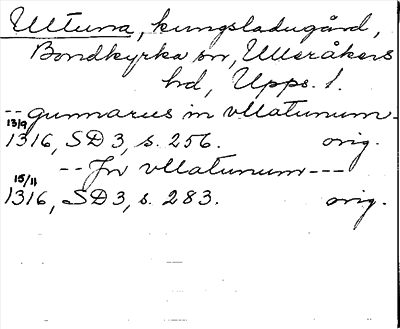 Ultuna, kungsladugård,
Bondkyrka sn, Ulleråkers
hd, Upps. l.
-- gunnarus in vllatunum -
13/9
1316, SD 3, s. 256. orig.
-- Jn vllatunum ---
15/11
1316, SD 3, s. 283. orig.